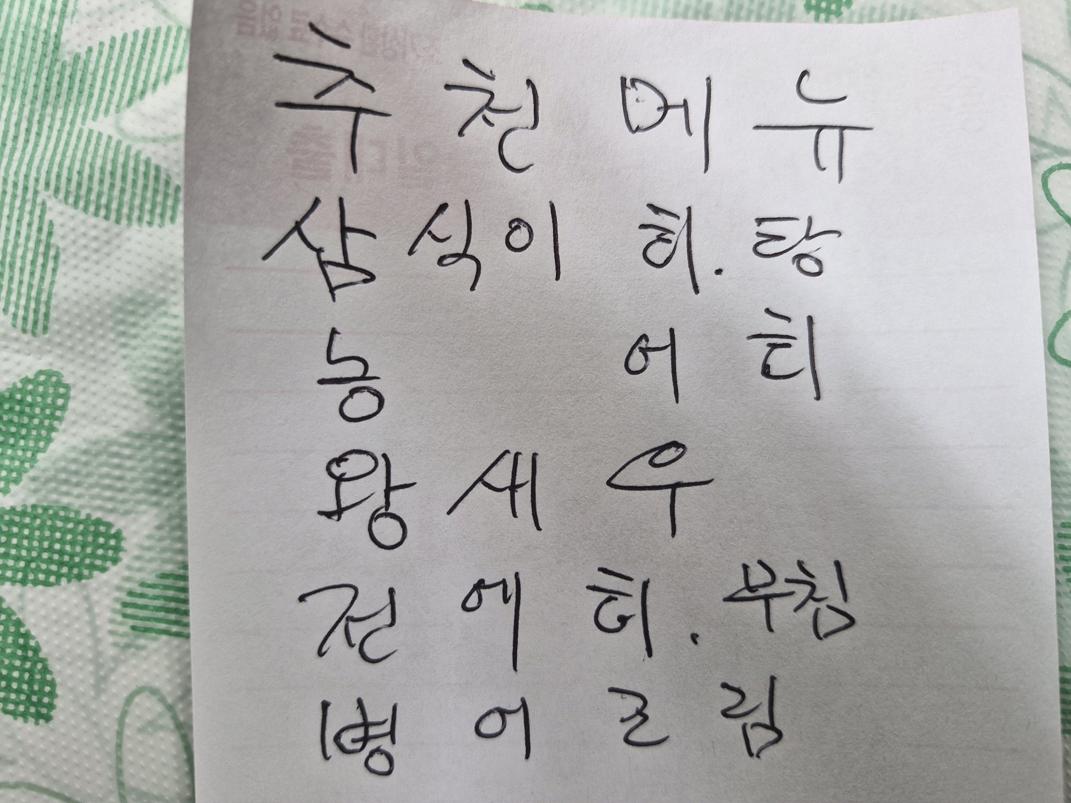 추천메뉴
삼식이 회.탕
농 어 회
왕새우
전에 회.부침
병어조림